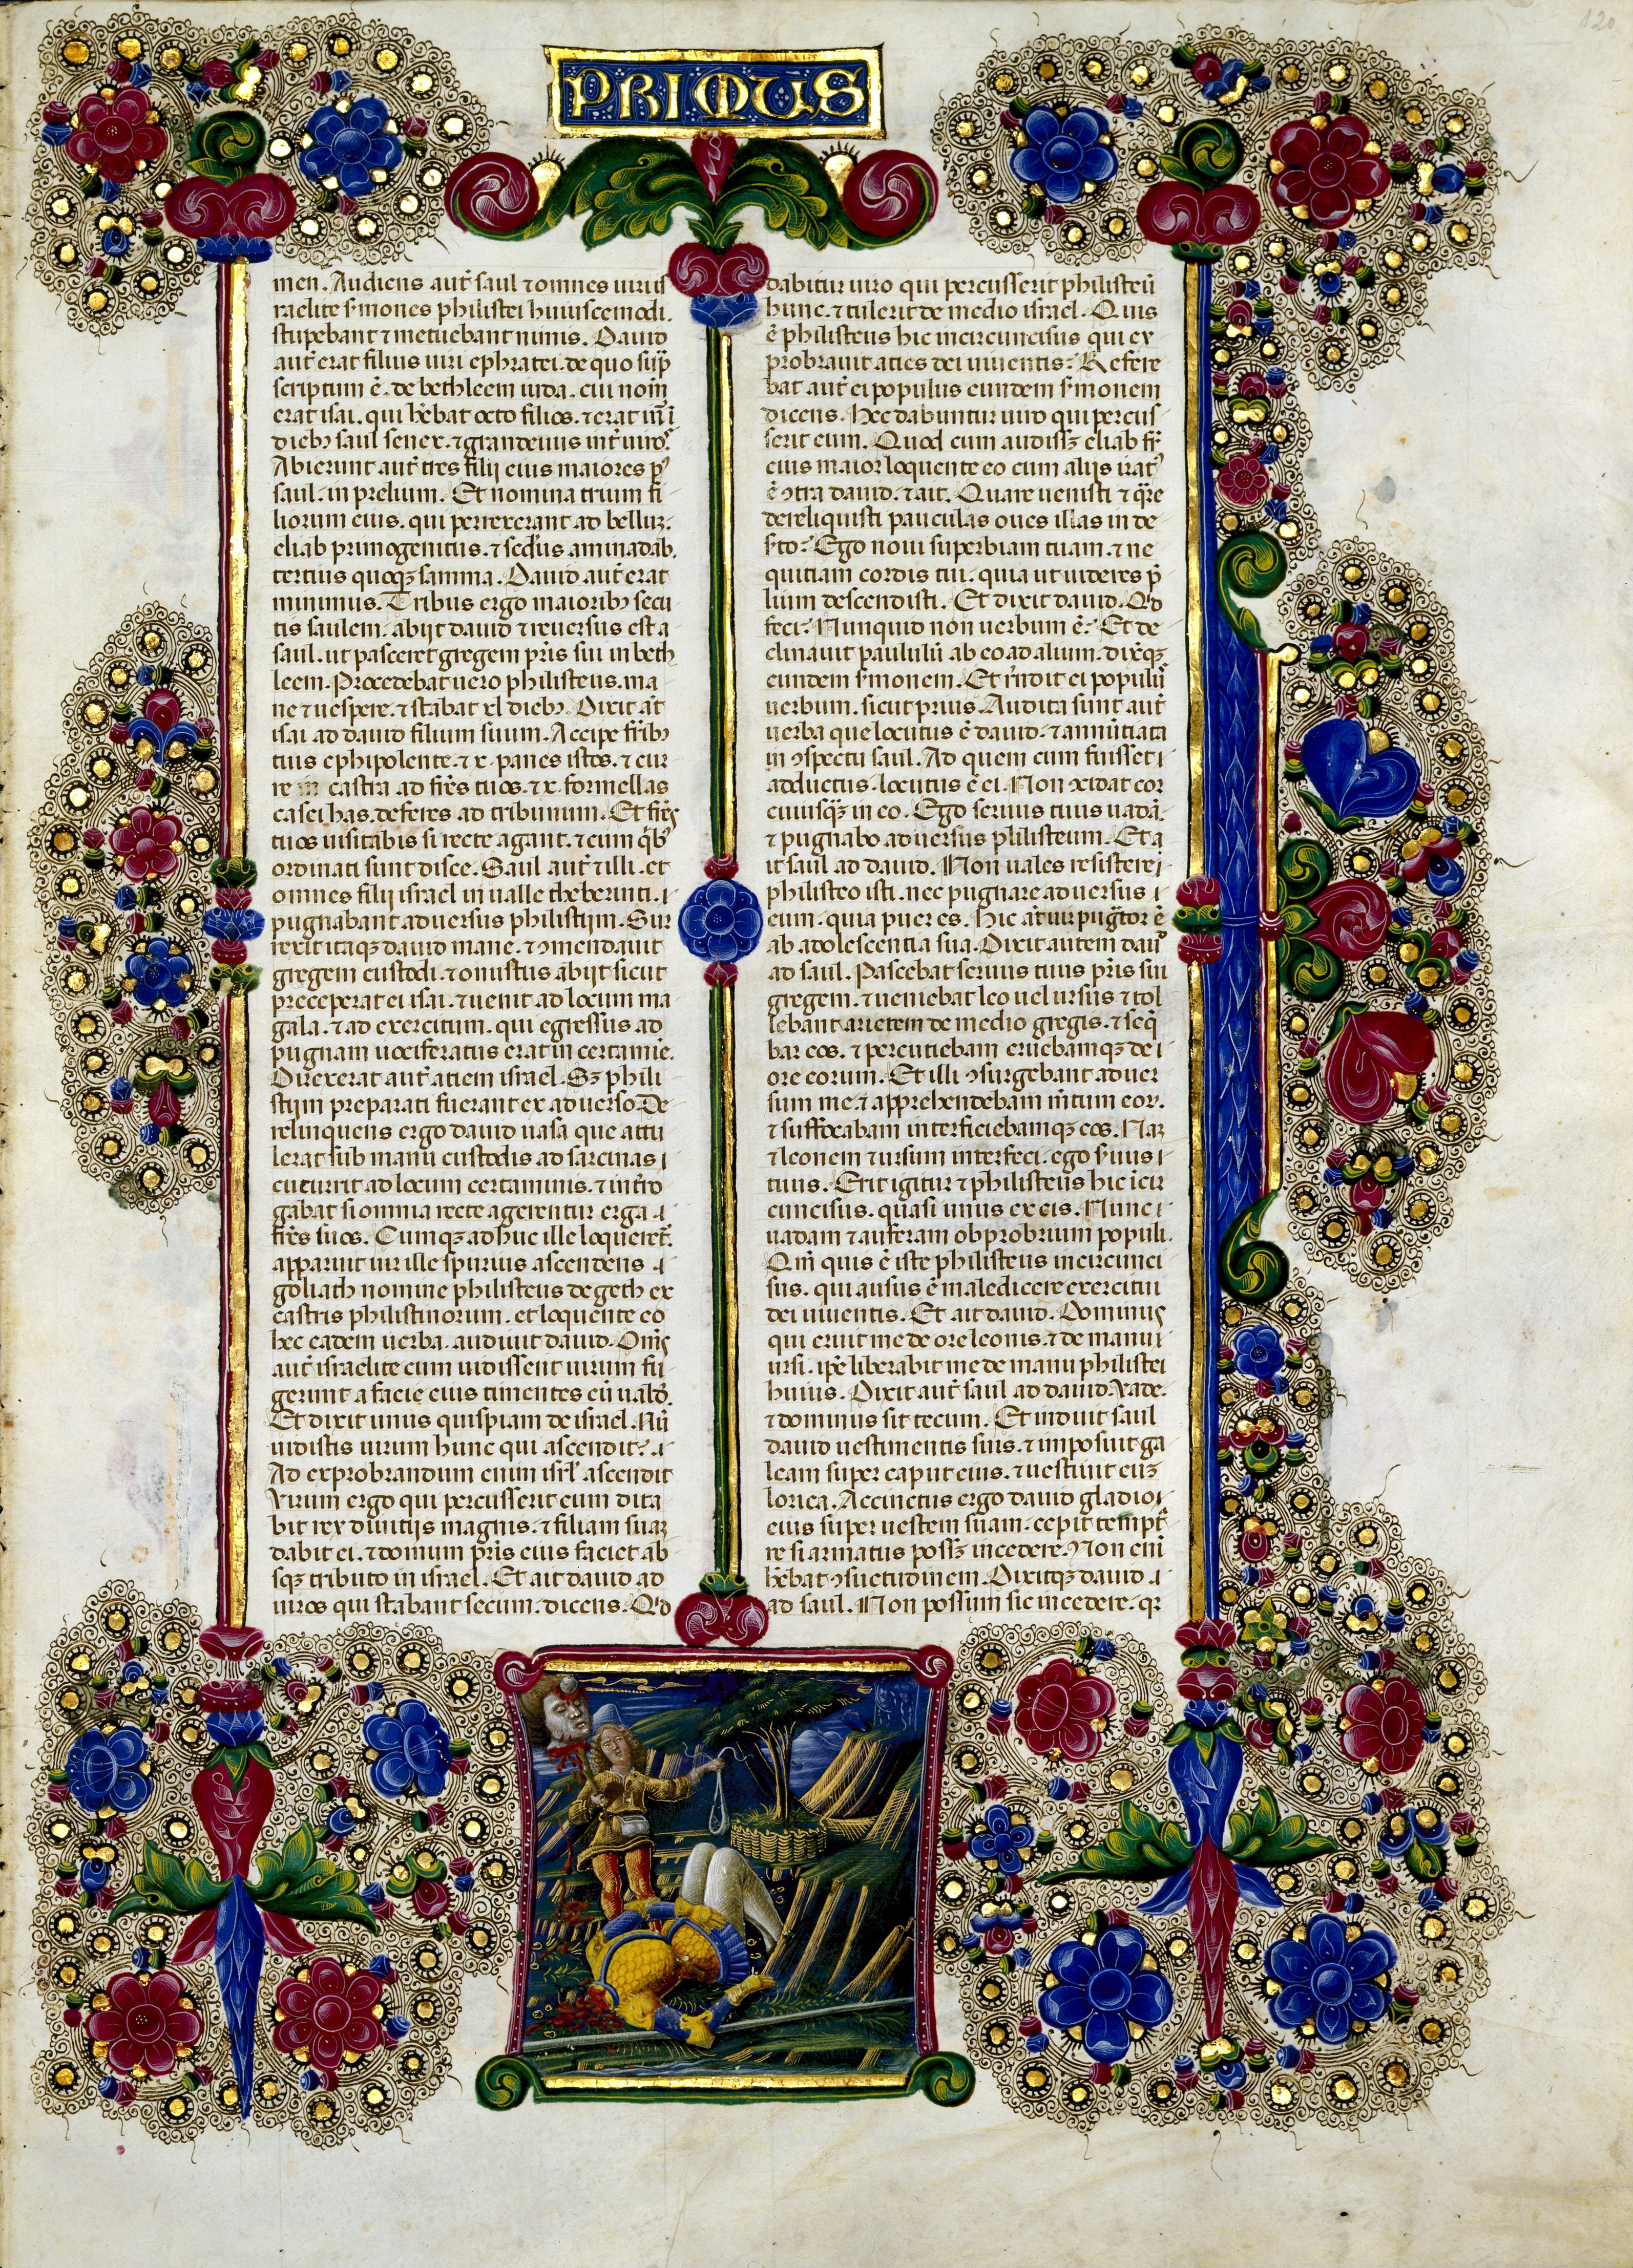 120
PRIMUS
men. Audiens aut̄ saul ⁊ omnes uiris
raelite s̄mones philistei huiuscemodi.
stupebant ⁊ metuebant nimis. Dauid
aut̄ erat filius uiri ephratei. de quo sup̄
scriptum ē. de bethleem iuda. cui nom̄
erat isai. qui h̄ebat octo filios. ⁊ erat
dieb₃ saul senex. ⁊ grandeuus int̄ uiros
Abierunt aut̄ tres filii eius maiores p
saul. in prelium. Et nomina trium fi
liorum eius. qui perrexerant ad belluz.
eliab primogenitus. ⁊ scd̄us aminadab.
tertius quoqꝫ samma. Dauid aut̄ erat
minimus. Tribus ergo maiorib₃ secu
tis saulem. abijt dauid ⁊ reuersus est a
saul. ut pasceret gregem pr̄is sui in beth
leem. Procedebat uero philisteus. ma
ne ⁊ uespere. ⁊ stabat xl dieb₃. Dixit at̄
isai ad dauid filium suum. Accipe fr̄ib₃
tuis ephi polente. ⁊ x. panes istos. ⁊ cur
re in castra ad fr̄es tuos. ⁊ x. formellas
casei has. deferes ad tribunum. Et fr̄es
tuos uisitabis si recte agant. ⁊ cum qb̄
ordinati sunt disce. Saul aut̄ ⁊ illi. et
omnes filii israel in ualle therebinti. i
pugnabant aduersus philistijm. Sur
rexit itaqꝫ dauid mane. ⁊ ꝯmendauit
gregem custodi. ⁊ onustus abijt sicut
preceperat ei isai. ⁊ uenit ad locum ma
gala. ⁊ ad exercitum. qui egressus ad
pugnam uociferatus erat in certamie.
Direxerat aut̄ aciem israel. Sꝫ phili
stijm preparati fuerant ex aduerso. De
relinquens ergo dauid uasa que attu
lerat sub manu custodis ad sarcinas i
cucurrit ad locum certaminis. ⁊ int̄ro
gabat si omnia recte agerentur erga i
fr̄es suos. Cumqꝫ adhuc ille loqueret̄.
apparuit uir ille spurius ascendens i
goliath nomine philisteus de geth ex
castris philistinorum. et loquente eo
hec eadem uerba. audiuit dauid. Om̄s
aut̄ israelite cum uidissent uirum fu
gerunt a facie eius timentes eū ualde.
Et dixit unus quispiam de israel. Nū
uidistis uirum hunc qui ascendit? i
Ad exprobrandum enim isrl̄ ascendit
Virum ergo qui percusserit eum dita
bit rex diuitijs magnis. ⁊ filiam suaꝫ
dabit ei. ⁊ domum pr̄is eius faciet ab
sqꝫ tributo in israel. Et ait dauid ad
uiros qui stabant secum. dicens. Qd
dabitur uiro qui percusserit philisteū
hunc. ⁊ tulerit de medio israel. Quis
ē philisteus hic incircuncisus qui ex
probrauit acies dei uiuentis? Refere
bat aut̄ ei populus eundem s̄monem
dicens. Hec dabuntur uiro qui percus
serit eum. Quod cum audissꝫ eliab fr̄
eius maior loquente eo cum alijs irat
ē ꝯtra dauid. ⁊ ait. Quare uenisti ⁊ q̄re
dereliquisti pauculas oues illas in de
s̄to? Ego noui superbiam tuam. ⁊ ne
quitiam cordis tui. quia ut uideres p̄
lium descendisti. Et dixit dauid. Qd
feci? Nunquid non uerbum ē? Et de
clinauit paululū ab eo ad alium. dixitqꝫ
eundem s̄monem. Et r̄ndit ei populū
uerbum. sicut prius. Audita sunt aut̄
uerba que locutus ē dauid. ⁊ annūtiata
in ꝯspectu saul. Ad quem cum fuisset i
adductus. locutus ē ei. Non ꝯcidat cor
cuiusqꝫ in eo. Ego seruus tuus uadā.
⁊ pugnabo aduersus philisteum. Et a
it saul ad dauid. Non uales resistere i
philisteo isti. nec pugnare aduersus i
eum. quia puer es. Hic at̄ uir pugtor ē
ab adolescentia sua. Dixit autem daud
ad saul. Pascebat seruus tuus pr̄is sui
gregem. ⁊ ueniebat leo uel ursus ⁊ tol
lebant arietem de medio gregis. ⁊ seq̄
bar eos. ⁊ percutiebam eruebamqꝫ de i
ore eorum. Et illi ꝯsurgebant aduer
sum me. ⁊ apprehendebam m̄tum eoꝝ.
⁊ suffocabam interficiebamqꝫ eos. Naꝫ
⁊ leonem ⁊ ursum interfeci. ego s̄uus i
tuus. Erit igitur ⁊ philisteus hic icir
cuncisus. quasi unus ex eis. Nunc i
uadam ⁊ auferam obprobrium populi.
Qm̄ quis ē iste philisteus incircunci
sus. qui ausus ē maledicere exercitui
dei uiuentis. Et ait dauid. Dominus
qui eruit me de ore leonis. ⁊ de manu i
ursi. ip̄e liberabit me de manu philistei
huius. Dixit aut̄ saul ad dauid. Vade.
⁊ dominus sit tecum. Et induit saul
dauid uestimentis suis. ⁊ imposuit ga
leam super caput eius. ⁊ uestiuit euꝫ
lorica. Accinctus ergo dauid gladio
eius super uestem suam. cepit tempta
re si armatus possꝫ incedere. Non eni
h̄ebat ꝯsuetudinem. Dixitqꝫ dauid i
ad saul. Non possum sic incedere. qꝛ